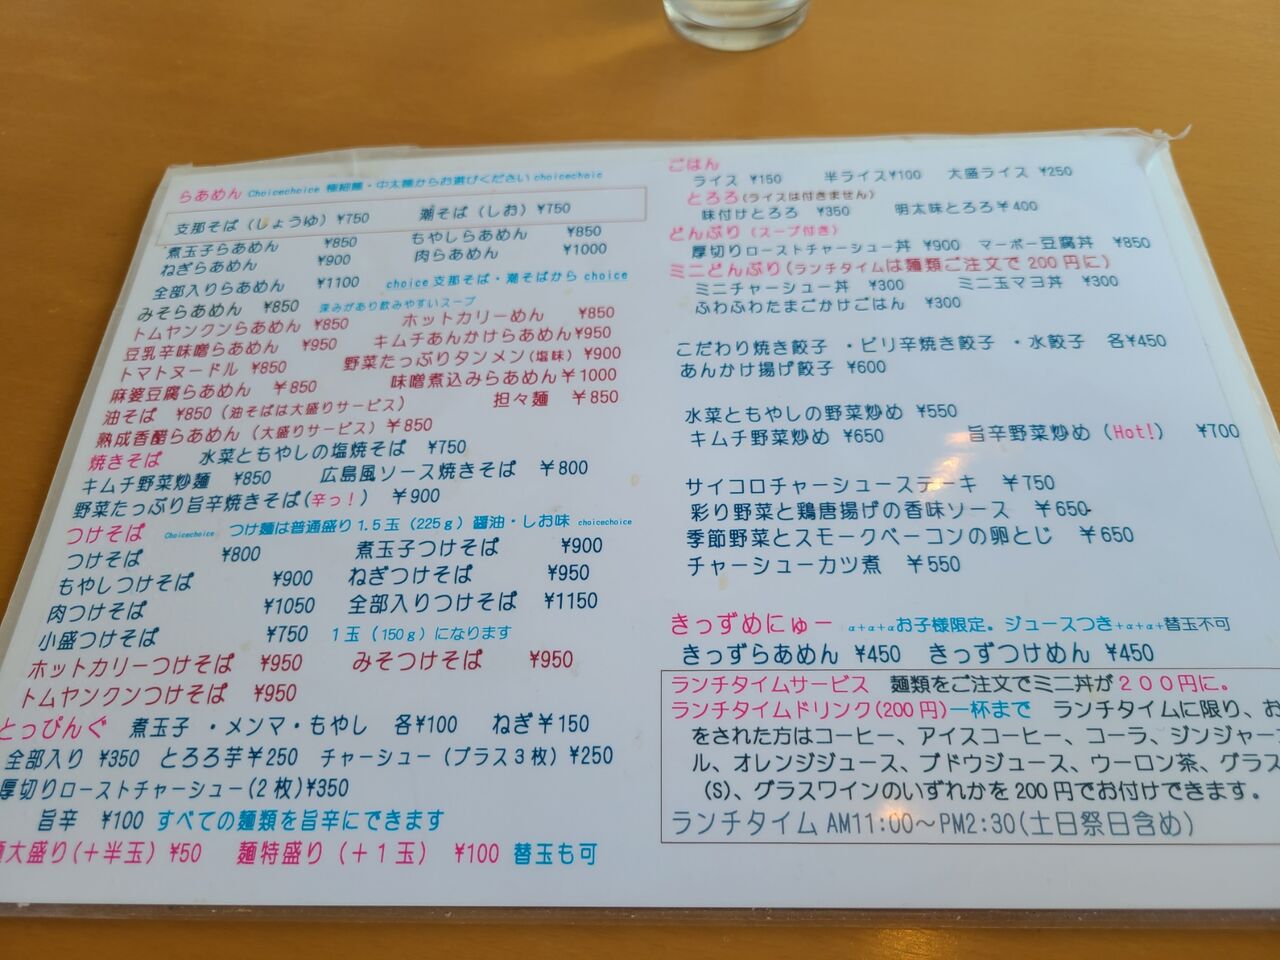 らあめん Choicechoice 極細麺・中太麺からお選びください choicechoic
支那そば（しょうゆ）¥750 潮そば（しお）¥750
煮玉子らあめん ¥850 もやしらあめん ¥850
ねぎらあめん ¥900 肉らあめん ¥1000
全部入りらあめん ¥1100 choice 支那そば・潮そばから choice
みそらあめん ¥850 深みがあり飲みやすいスープ
トムヤンクンらあめん ¥850 ホットカリーめん ¥850
豆乳辛味噌らあめん ¥950 キムチあんかけらあめん¥950
トマトヌードル ¥850 野菜たっぷりタンメン（塩味）¥900
麻婆豆腐らあめん ¥850 味噌煮込みらあめん¥1000
油そば ¥850（油そばは大盛りサービス） 担々麺 ¥850
熟成香醋らあめん（大盛りサービス）¥850
焼きそば 水菜ともやしの塩焼そば ¥750
キムチ野菜炒麺 ¥850 広島風ソース焼きそば ¥800
野菜たっぷり旨辛焼きそば（辛っ！） ¥900
つけそば Choicechoice つけ麺は普通盛り1.5玉（225g）醤油・しお味 choicechoice
つけそば ¥800 煮玉子つけそば ¥900
もやしつけそば ¥900 ねぎつけそば ¥950
肉つけそば ¥1050 全部入りつけそば ¥1150
小盛つけそば ¥750 1玉（150g）になります
ホットカリーつけそば ¥950 みそつけそば ¥950
トムヤンクンつけそば ¥950
とっぴんぐ 煮玉子・メンマ・もやし 各¥100 ねぎ¥150
全部入り ¥350 とろろ芋¥250 チャーシュー（プラス3枚）¥250
厚切りローストチャーシュー(2枚)¥350
旨辛 ¥100 すべての麺類を旨辛にできます
大盛り(＋半玉) ¥50 麺特盛り（＋1玉） ¥100 替玉も可
ごはん
ライス ¥150 半ライス¥100 大盛ライス ¥250
とろろ(ライスは付きません)
味付けとろろ ¥350 明太味とろろ¥400
どんぶり（スープ付き）
厚切りローストチャーシュー丼 ¥900 マーボー豆腐丼 ¥850
ミニどんぶり(ランチタイムは麺類ご注文で200円に)
ミニチャーシュー丼 ¥300 ミニ玉マヨ丼 ¥300
ふわふわたまごかけごはん ¥300
こだわり焼き餃子 ・ピリ辛焼き餃子 ・水餃子 各¥450
あんかけ揚げ餃子 ¥600
水菜ともやしの野菜炒め ¥550
キムチ野菜炒め ¥650 旨辛野菜炒め（Hot!） ¥700
サイコロチャーシューステーキ ¥750
彩り野菜と鶏唐揚げの香味ソース ¥650
季節野菜とスモークベーコンの卵とじ ¥650
チャーシューカツ煮 ¥550
きっずめにゅー +α+α+αお子様限定。ジュースつき+α+α+替玉不可
きっずらあめん ¥450 きっずつけめん ¥450
ランチタイムサービス 麺類をご注文でミニ丼が200円に。
ランチタイムドリンク(200円)一杯まで ランチタイムに限り、お
をされた方はコーヒー、アイスコーヒー、コーラ、ジンジャー
ル、オレンジジュース、ブドウジュース、ウーロン茶、グラス
（S)、グラスワインのいずれかを200円でお付けできます。
ランチタイム AM11:00～PM2:30(土日祭日含め)